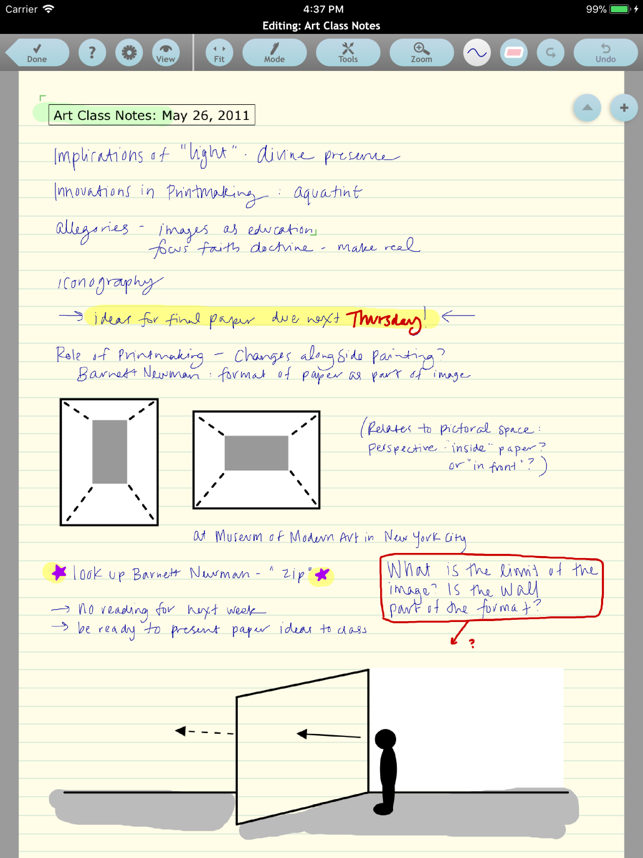 Carrier 4:37 PM 99%
Editing: Art Class Notes
Done ? View Fit Mode Tools Zoom Undo
Art Class Notes: May 26, 2011
Implications of "light" - divine presence
Innovations in Printmaking : aquatint
allegories - images as education
focus faith doctrine - make real
iconography
→ ideas for final paper due next Thursday! ←
Role of Printmaking - Changes alongside painting?
Barnett Newman : format of paper as part of image
(Relates to pictorial space:
perspective - "inside" paper?
or "in front"?)
at Museum of Modern Art in New York City
look up Barnett Newman - "zip"
What is the limit of the
image? Is the wall
part of the format?
→ no reading for next week
→ be ready to present paper ideas to class
?